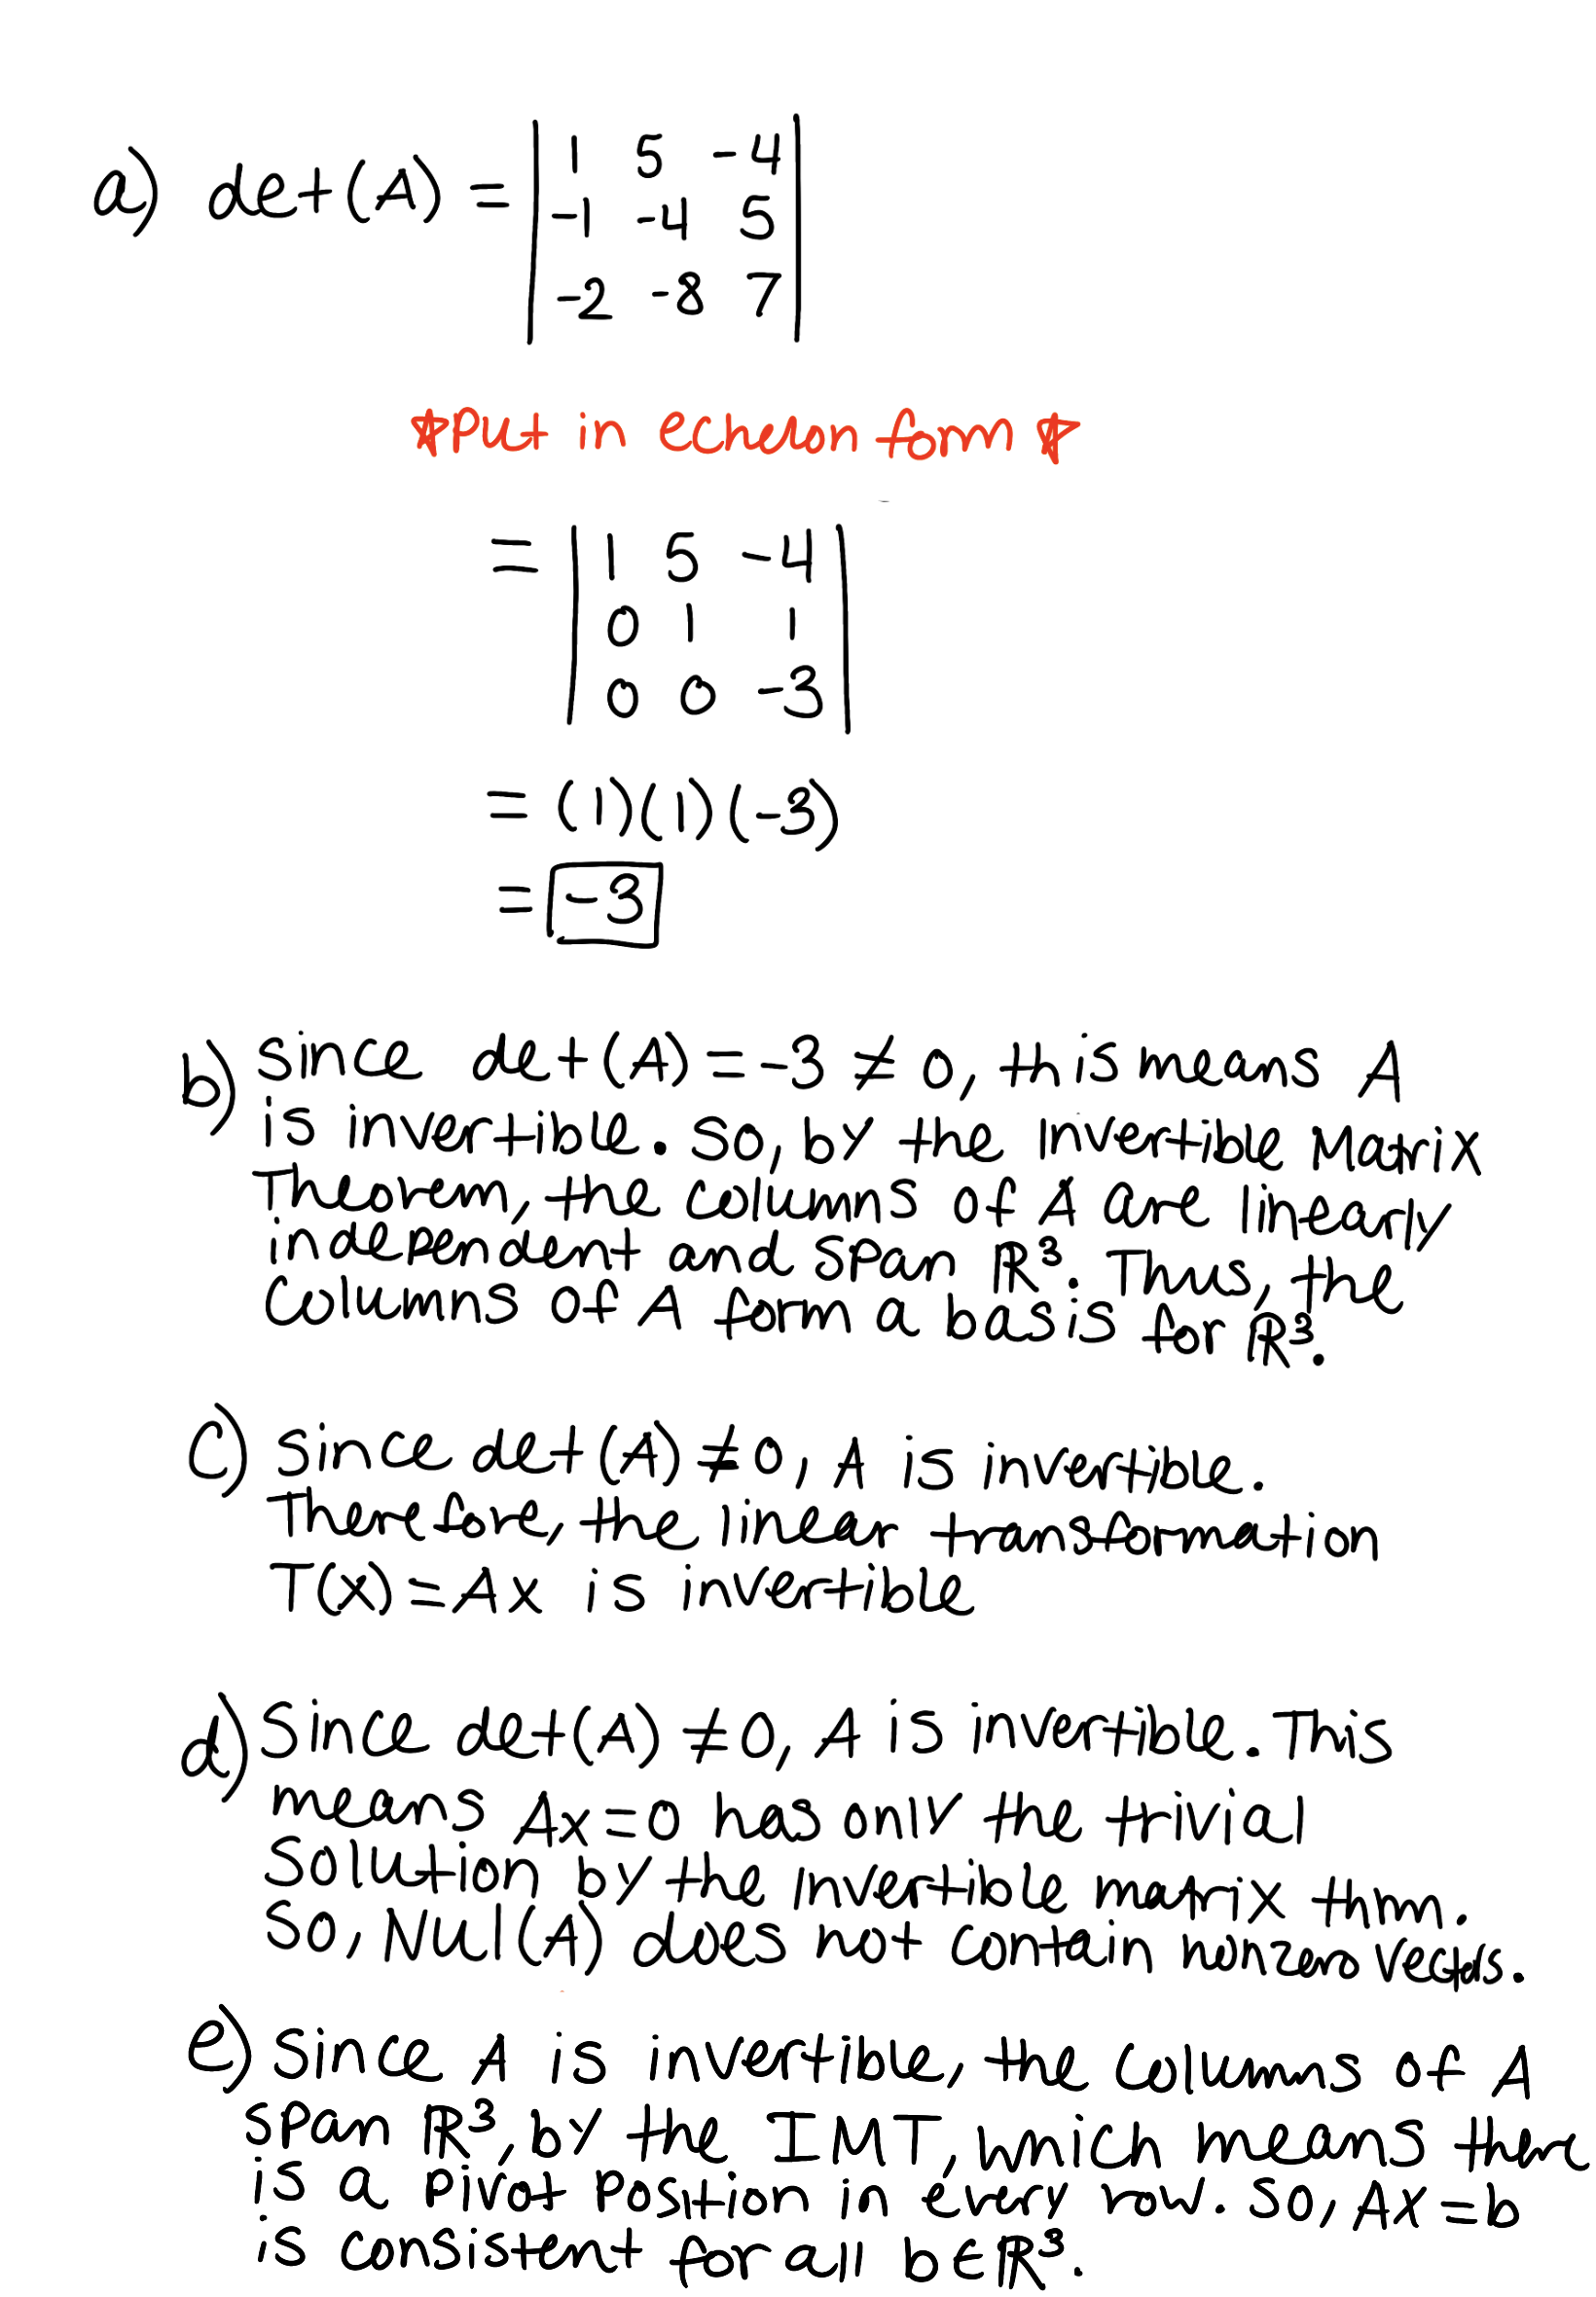 a) det(A) = | 1 5 -4 |
| -1 -4 5 |
| -2 -8 7 |
☆Put in echelon form☆
= | 1 5 -4 |
| 0 1 1 |
| 0 0 -3 |
= (1)(1)(-3)
= -3
b) Since det(A) = -3 ≠ 0, this means A
is invertible. So, by the Invertible Matrix
Theorem, the columns of A are linearly
independent and span ℝ³. Thus, the
columns of A form a basis for ℝ³.
c) Since det(A) ≠ 0, A is invertible.
Therefore, the linear transformation
T(x) = Ax is invertible
d) Since det(A) ≠ 0, A is invertible. This
means Ax=0 has only the trivial
solution by the invertible matrix thm.
So, Nul(A) does not contain nonzero vectors.
e) Since A is invertible, the columns of A
span ℝ³, by the IMT, which means there
is a pivot position in every row. So, Ax=b
is consistent for all b∈ℝ³.